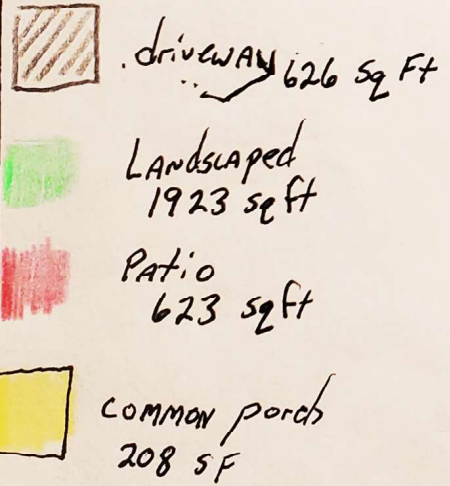 driveway 626 Sq Ft
Landscaped
1923 sq ft
Patio
623 sq ft
common porch
208 SF